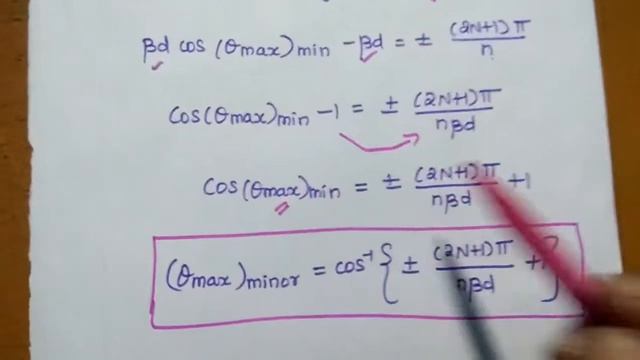 βd cos (θmax)min - βd = ± (2N+1)π / n
cos(θmax)min - 1 = ± (2N+1)π / nβd
cos(θmax)min = ± (2N+1)π / nβd + 1
(θmax)minor = cos⁻¹ { ± (2N+1)π / nβd + }